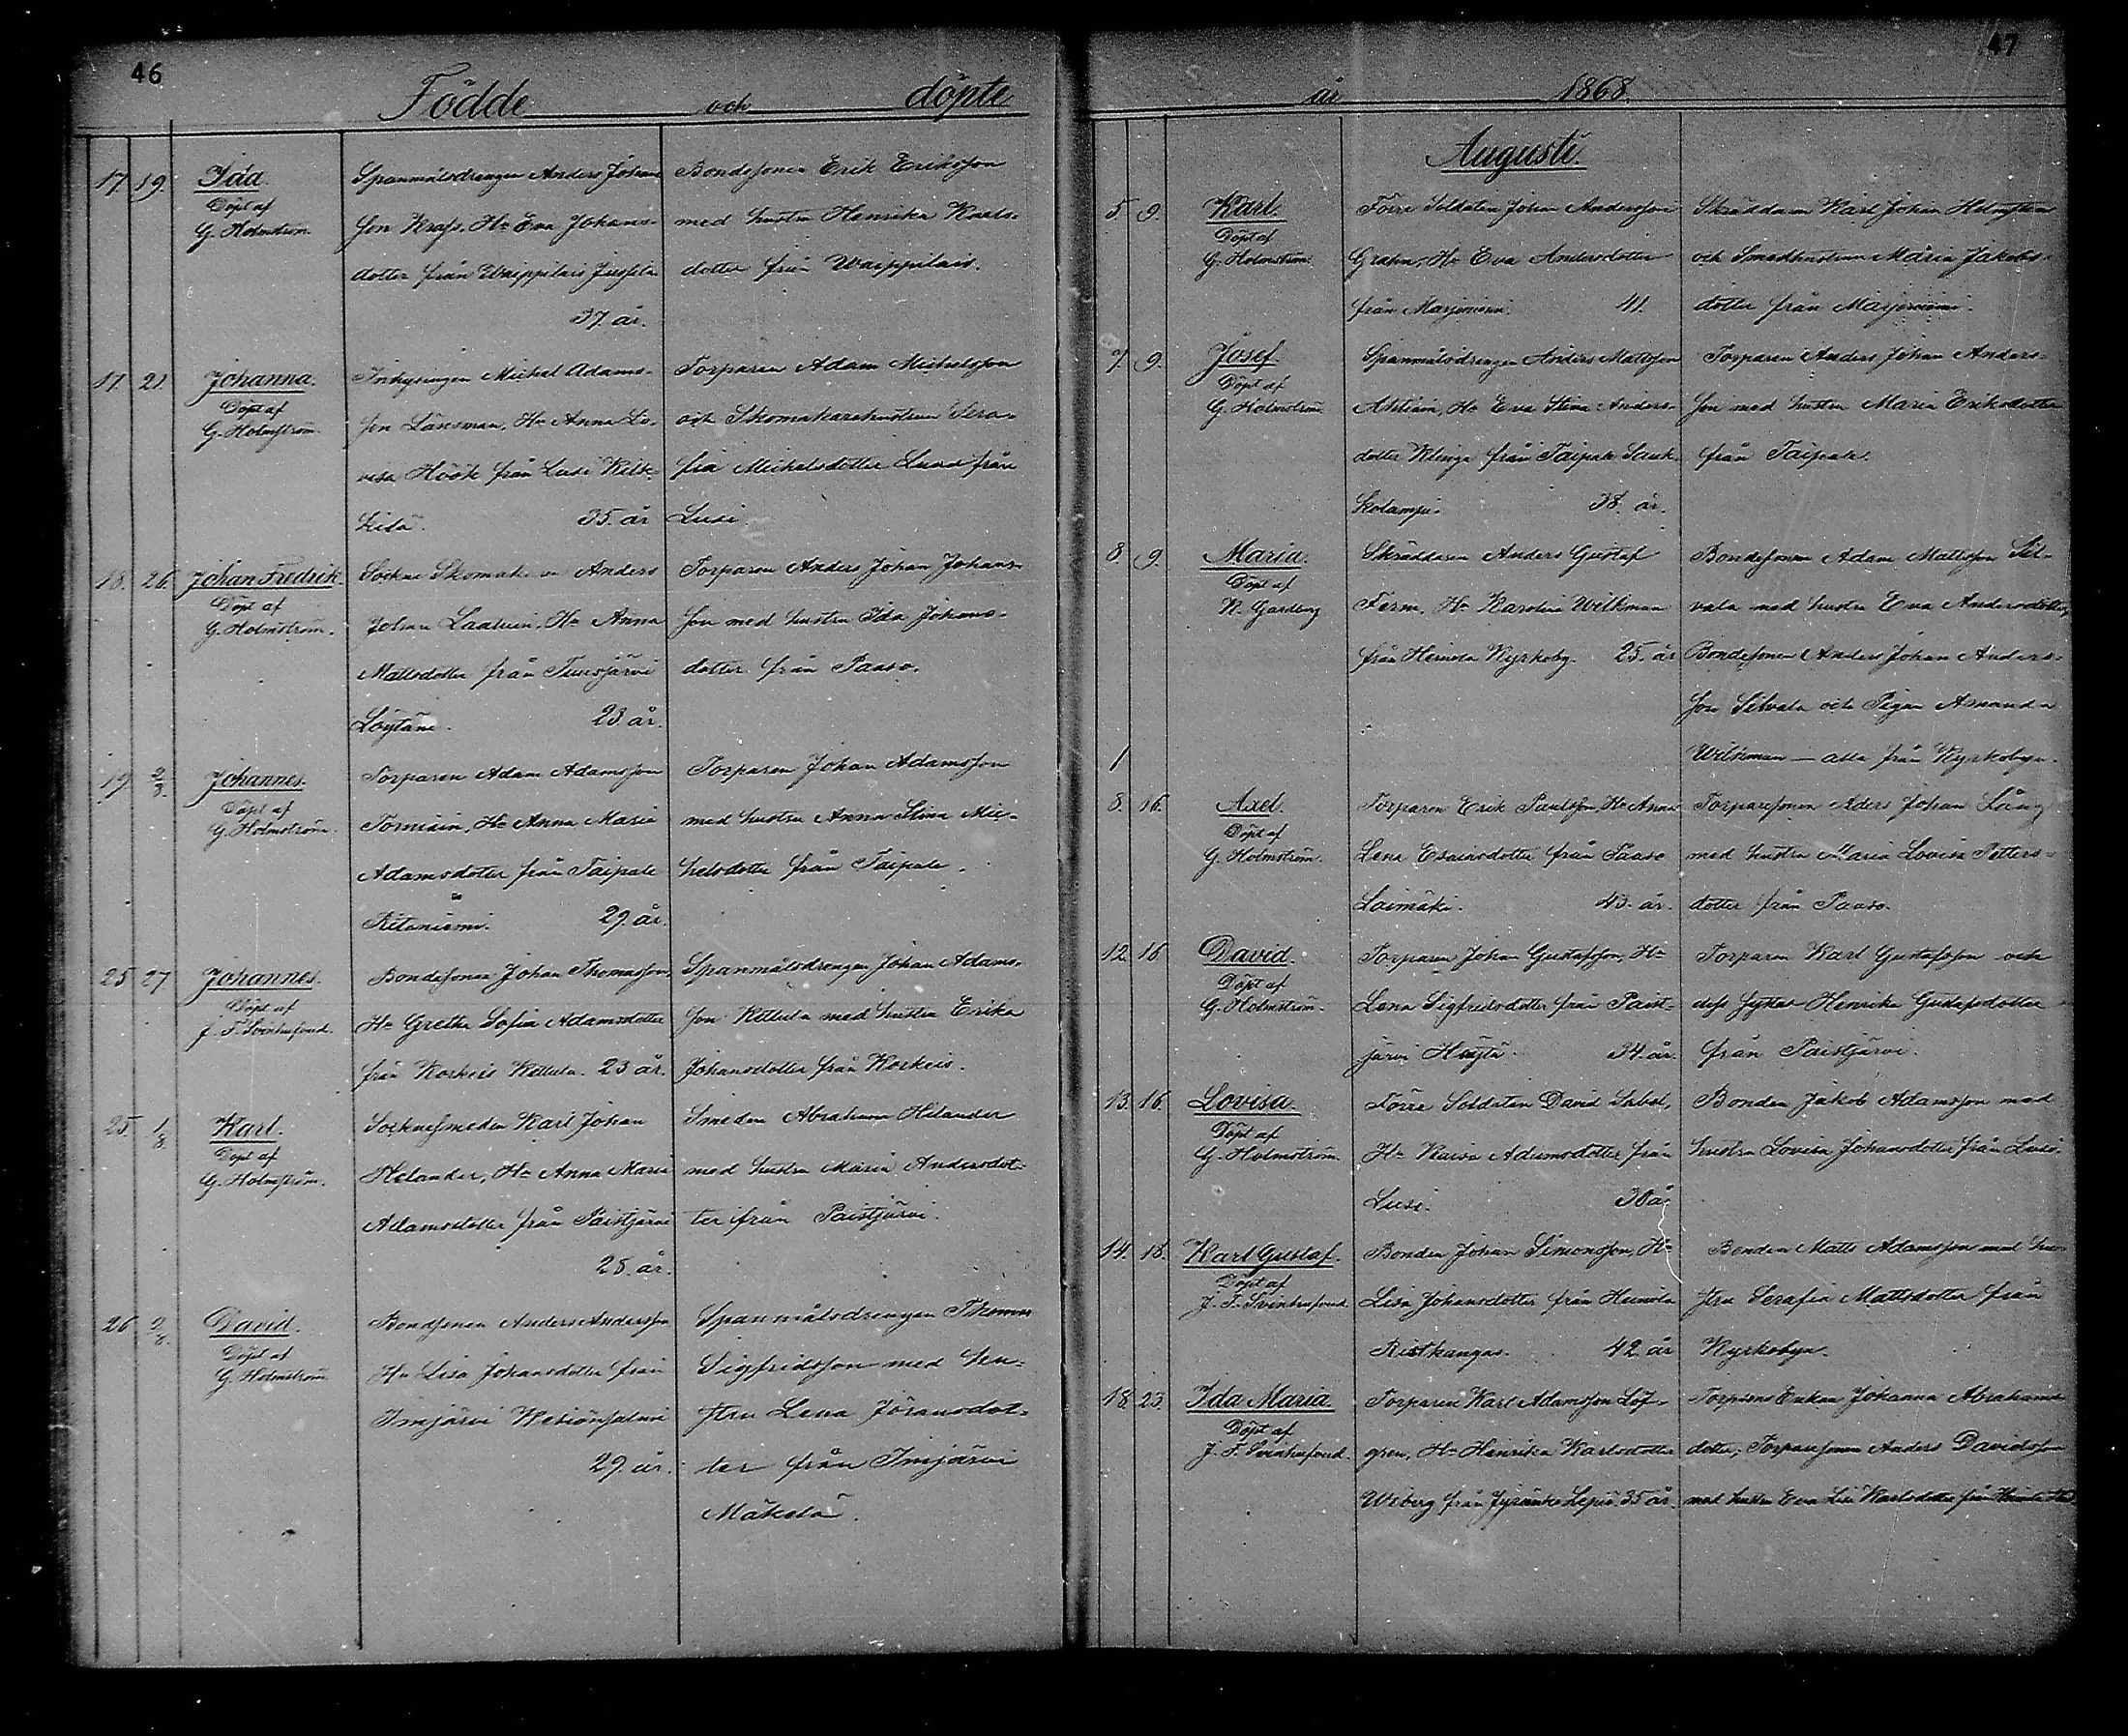 46
Födde och döpte
17. 19. Ida.
Döpt af
G. Holmström
Spanmålsdrengen Anders Johans
son Krafs, Hu Eva Johans-
dotter från Waippilais Jussila
37 år.
Bondesonen Erik Eriksson
med hustru Henrika Karls-
dotter från Waippilais.
17. 21. Johanna.
Döpt af
G. Holmström
Inhysingen Michel Adams-
son Länsman, Hu Anna Lo-
visa Höök från Lusi Kesk-
35. år
Torparen Adam Michelsson
och Skomakarehustrun Sera-
fia Michelsdotter Lund från
Lusi.
18. 26. Johan Fredrik.
Döpt af
G. Holmström.
Sockne Skomakaren Anders
Johan Laatuin, Hu Anna
Mattsdotter från Tuusjärvi
Löytäne. 23 år.
Torparen Anders Johan Johans-
son med hustru Ida Johans-
dotter från Paaso.
19. 2/8 Johannes.
Döpt af
G. Holmström.
Torparen Adam Adamsson
Torniain, Hu Anna Maria
Adamsdotter från Taipale
Ritaniemi. 29 år.
Torparen Johan Adamsson
med hustru Anna Stina Mic-
helsdotter från Taipale.
25 27 Johannes.
Döpt af
J. F. Svinhufvud.
Bondesonen Johan Thomasson,
Hu Gretha Sofia Adamsdotter
från Korkeis Kettula. 23 år.
Spanmålsdrengen Johan Adams-
son Kettula med hustru Erika
Johansdotter från Korkeis.
25. 1/8 Karl.
Döpt af
G. Holmström.
Socknesmeden Karl Johan
Helander, Hu Anna Maria
Adamsdotter från Paistjärvi
25. år.
Smeden Abraham Helander
med hustru Maria Andersdot-
ter från Paistjärvi.
26 2/8. David.
Döpt af
G. Holmström
Bondsonen Anders Andersson
Hu Lisa Johansdotter från
Imjärvi
29. år.
Spanmålsdrengen Thomas
Sigfridsson med hu-
stru Lena Jöransdot-
ter från Imjärvi
Mäkelä.
47
år 1868.
Augusti.
5. 9. Karl.
Döpt af
G. Holmström.
Förre Soldaten Johan Andersson
Grahn, Hu Eva Andersdotter
från Marjoniemi. 41.
Skräddaren Karl Johan Holmsten
och Smedhustrun Maria Jakobs-
dotter från Marjoniemi.
7. 9. Josef.
Döpt af
G. Holmström
Spanmålsdrengen Anders Mattsson
Ahtiain, Hu Eva Stina Anders-
dotter Klinga från Taipale Sauk-
kolampi. 38. år.
Torparen Anders Johan Anders-
son med hustru Maria Eriksdotter
från Taipale.
8. 9. Maria.
Döpt af
K. Gardberg
Skräddaren Anders Gustaf
Ferm, Hu Karolina Wilkman
från Heinola Kyrkoby. 25. år
Bondesonen Adam Mattsson Sil-
vala med hustru Eva Andersdotter,
Bondesonen Anders Johan Anders-
son Silvala och Pigan Amanda
Wilkman — alla från Kyrkobyn.
8. 16. Axel.
Döpt af
G. Holmström.
Torparen Erik Paulsson, Hu Anna
Lena Esaiasdotter från Paaso
Laimäki. 43. år.
Torparesonen Aders Johan Lång
med hustru Maria Lovisa Petters-
dotter från Paaso.
12. 16 David.
Döpt af
G. Holmström.
Torparen Johan Gustafsson, Hu
Lena Sigfridsdotter från Paist-
järvi 34. år.
Torparen Karl Gustafsson och
dess syster Henrika Gustafsdotter
från Paistjärvi.
13. 16. Lovisa.
Döpt af
G. Holmström.
Förre Soldaten David Sabel,
Hu Kaisa Adamsdotter från
Lusi. 30 år
Bonden Jakob Adamsson med
hustru Lovisa Johansdotter från Lusi.
14. 18. Karl Gustaf.
Döpt af
J. F. Svinhufvud
Bonden Johan Simonsson, Hu
Lisa Johansdotter från Heinola
Ristkangas. 42 år
Bonden Matts Adamsson med hu-
stru Serafia Mattsdotter från
Kyrkobyn.
18 23. Ida Maria.
Döpt af
J. F. Svinhufvud.
Torparen Karl Adamsson Löf-
gren, Hu Henrika Karlsdotter
Wiberg från Jyränkö Lepis. 35 år.
Torparens Enkan Johanna Abrahams-
dotter, Torparesonen Anders Davidsson
med hustru Eva Lisa Karlsdotter från Heinola